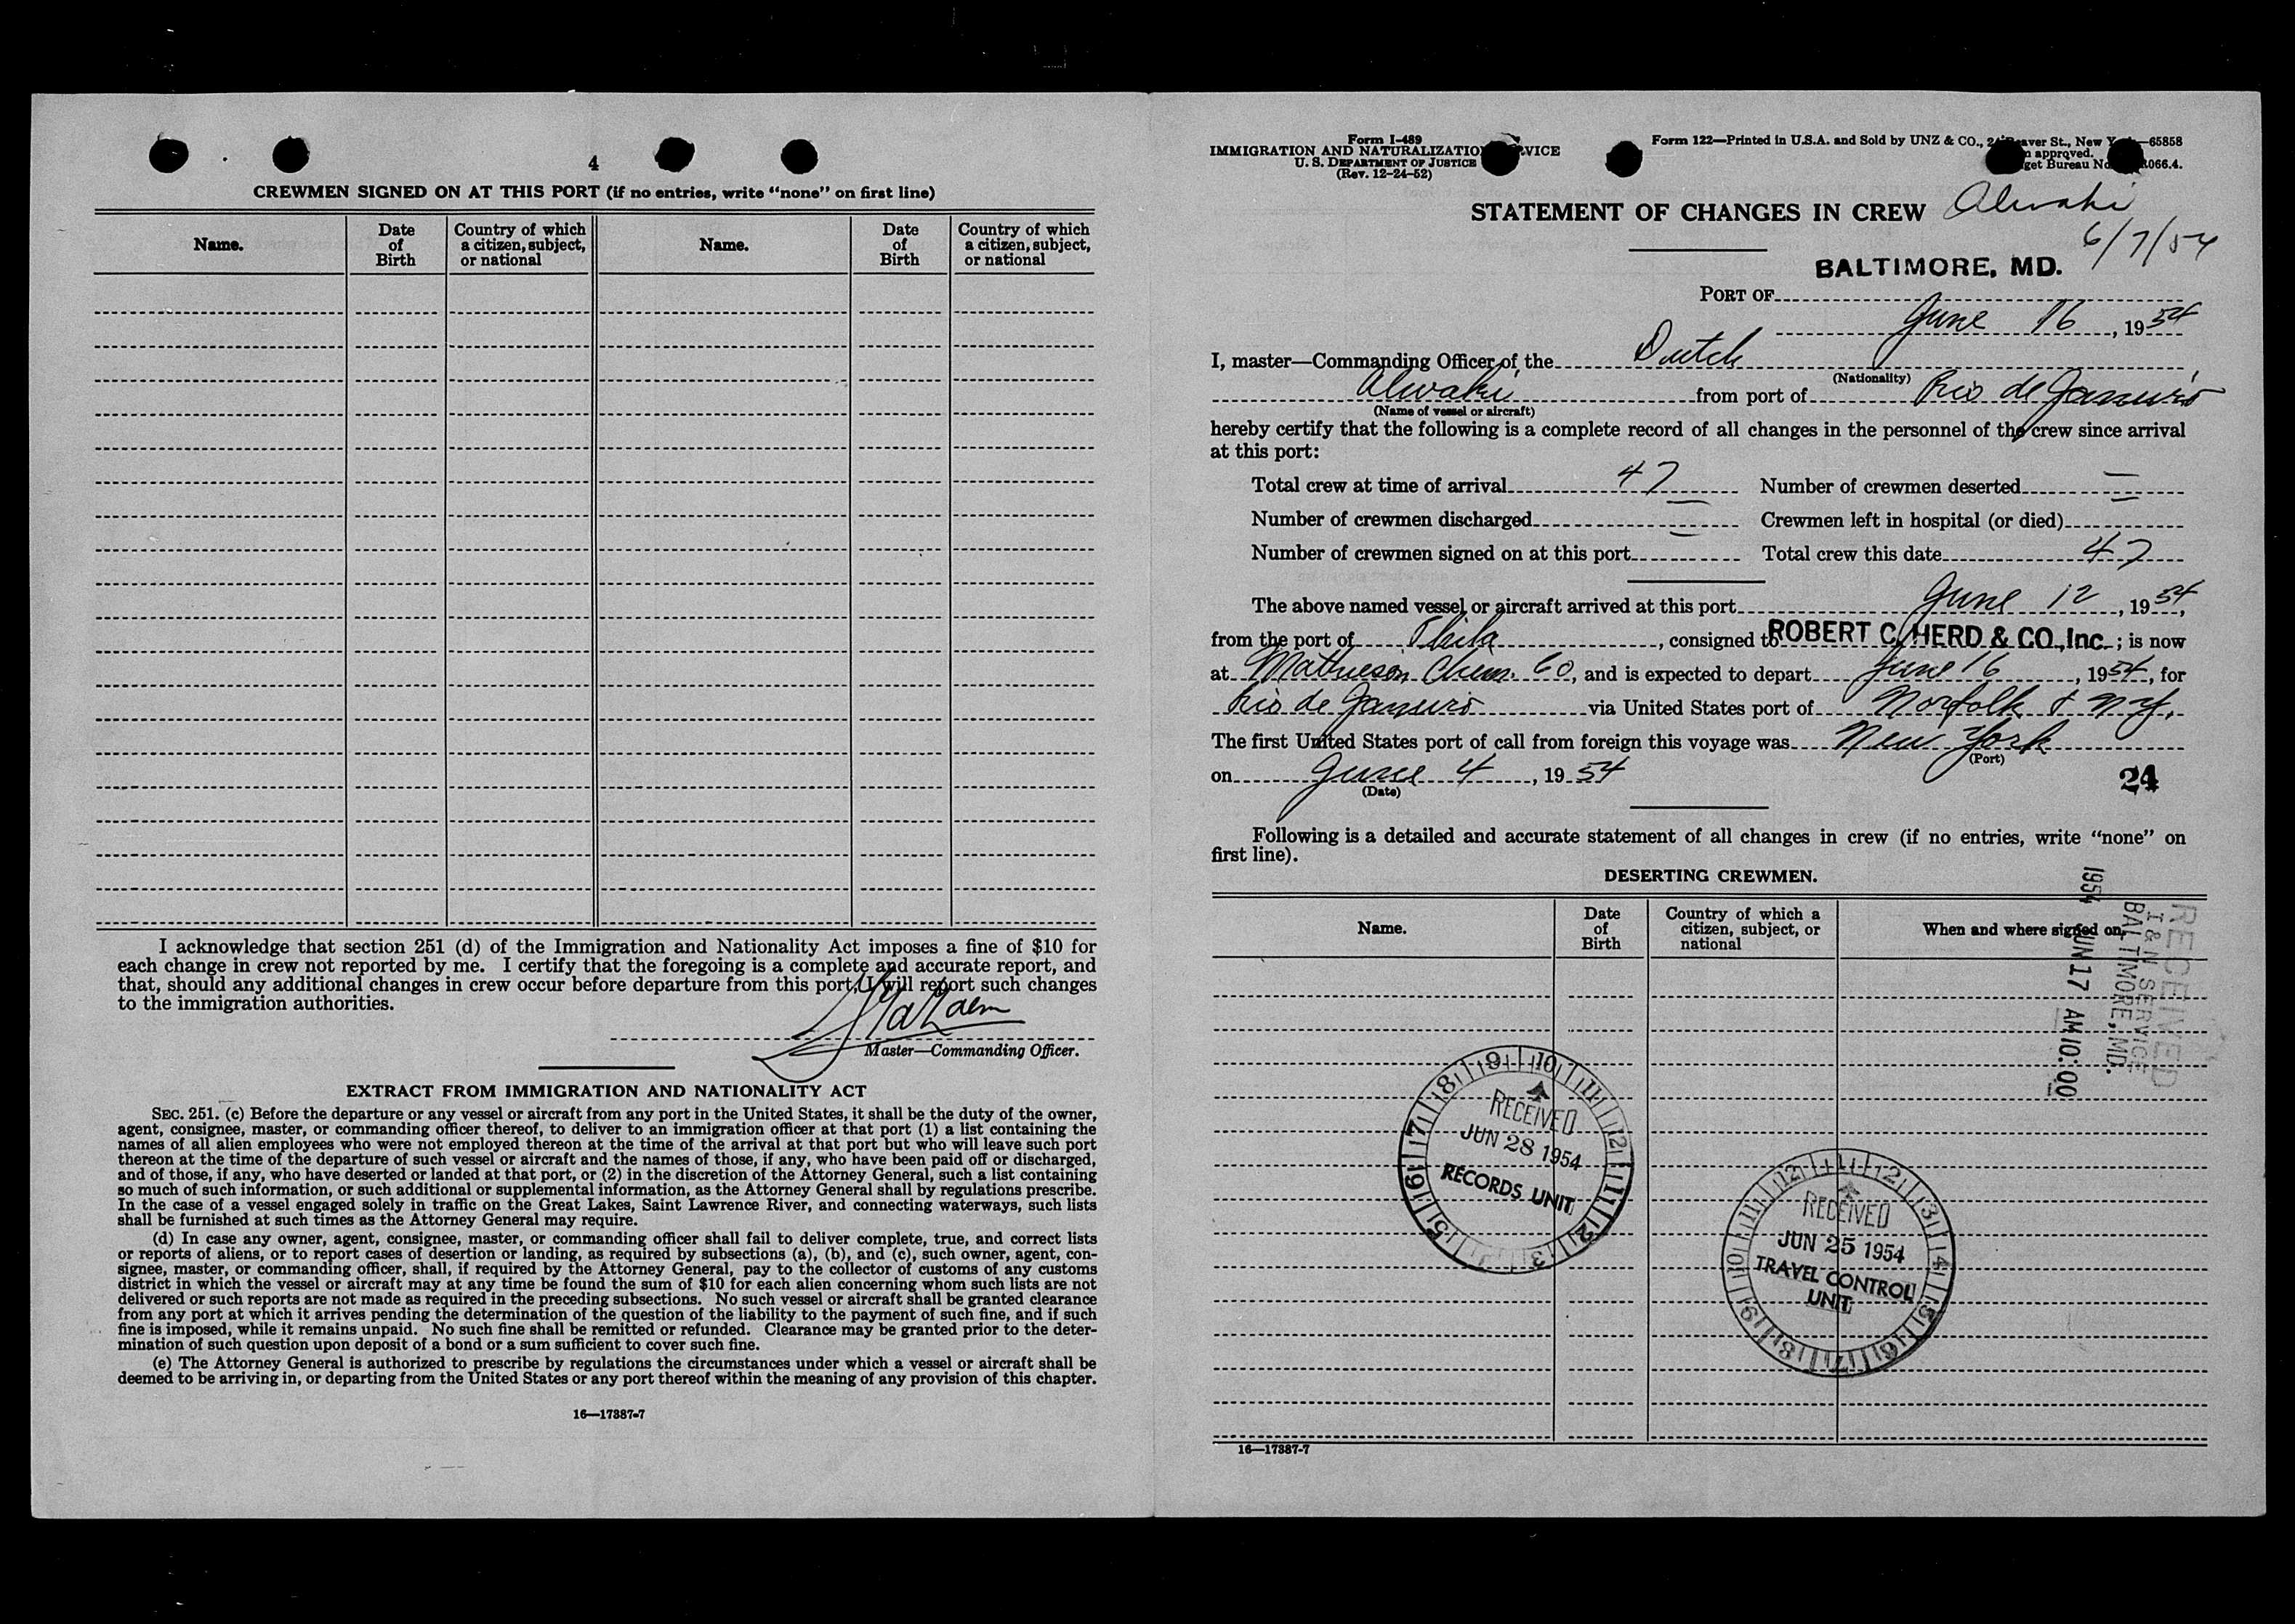 4
CREWMEN SIGNED ON AT THIS PORT (if no entries, write “none” on first line)
Name.
Date of Birth
Country of which a citizen, subject, or national
Name.
Date of Birth
Country of which a citizen, subject, or national
I acknowledge that section 251 (d) of the Immigration and Nationality Act imposes a fine of $10 for
each change in crew not reported by me. I certify that the foregoing is a complete and accurate report, and
that, should any additional changes in crew occur before departure from this port, I will report such changes
to the immigration authorities.
Master—Commanding Officer.
EXTRACT FROM IMMIGRATION AND NATIONALITY ACT
SEC. 251. (c) Before the departure or any vessel or aircraft from any port in the United States, it shall be the duty of the owner,
agent, consignee, master, or commanding officer thereof, to deliver to an immigration officer at that port (1) a list containing the
names of all alien employees who were not employed thereon at the time of the arrival at that port but who will leave such port
thereon at the time of the departure of such vessel or aircraft and the names of those, if any, who have been paid off or discharged,
and of those, if any, who have deserted or landed at that port, or (2) in the discretion of the Attorney General, such a list containing
so much of such information, or such additional or supplemental information, as the Attorney General shall by regulations prescribe.
In the case of a vessel engaged solely in traffic on the Great Lakes, Saint Lawrence River, and connecting waterways, such lists
shall be furnished at such times as the Attorney General may require.
(d) In case any owner, agent, consignee, master, or commanding officer shall fail to deliver complete, true, and correct lists
or reports of aliens, or to report cases of desertion or landing, as required by subsections (a), (b), and (c), such owner, agent, con-
signee, master, or commanding officer, shall, if required by the Attorney General, pay to the collector of customs of any customs
district in which the vessel or aircraft may at any time be found the sum of $10 for each alien concerning whom such lists are not
delivered or such reports are not made as required in the preceding subsections. No such vessel or aircraft shall be granted clearance
from any port at which it arrives pending the determination of the question of the liability to the payment of such fine, and if such
fine is imposed, while it remains unpaid. No such fine shall be remitted or refunded. Clearance may be granted prior to the deter-
mination of such question upon deposit of a bond or a sum sufficient to cover such fine.
(e) The Attorney General is authorized to prescribe by regulations the circumstances under which a vessel or aircraft shall be
deemed to be arriving in, or departing from the United States or any port thereof within the meaning of any provision of this chapter.
16—17387-7
Form I-489
IMMIGRATION AND NATURALIZATION SERVICE
U. S. DEPARTMENT OF JUSTICE
(Rev. 12-24-52)
Form 122—Printed in U.S.A. and Sold by UNZ & CO., St., New 65858
approved.
Bureau No. 066.4.
STATEMENT OF CHANGES IN CREW Alwaki
6/7/54
BALTIMORE, MD.
PORT OF
June 16, 1954
I, master—Commanding Officer of the Dutch
(Nationality)
Alwaki from port of Rio de Janeiro
(Name of vessel or aircraft)
hereby certify that the following is a complete record of all changes in the personnel of the crew since arrival
at this port:
Total crew at time of arrival 47 Number of crewmen deserted —
Number of crewmen discharged — Crewmen left in hospital (or died) —
Number of crewmen signed on at this port — Total crew this date 47
The above named vessel or aircraft arrived at this port June 12, 1954,
from the port of Phila, consigned to ROBERT C. HERD & CO., Inc.; is now
at Mathieson Chem. Co, and is expected to depart June 16, 1954, for
Rio de Janeiro via United States port of Norfolk & N.Y.
The first United States port of call from foreign this voyage was New York
(Port)
on June 4, 1954
(Date)
24
Following is a detailed and accurate statement of all changes in crew (if no entries, write “none” on
first line).
DESERTING CREWMEN.
Name.
Date of Birth
Country of which a citizen, subject, or national
When and where signed on.
RECEIVED
I & N SERVICE
BALTIMORE, MD.
1954 JUN 17 AM 10:00
RECEIVED
JUN 28 1954
RECORDS UNIT
RECEIVED
JUN 25 1954
TRAVEL CONTROL
UNIT
16—17387-7